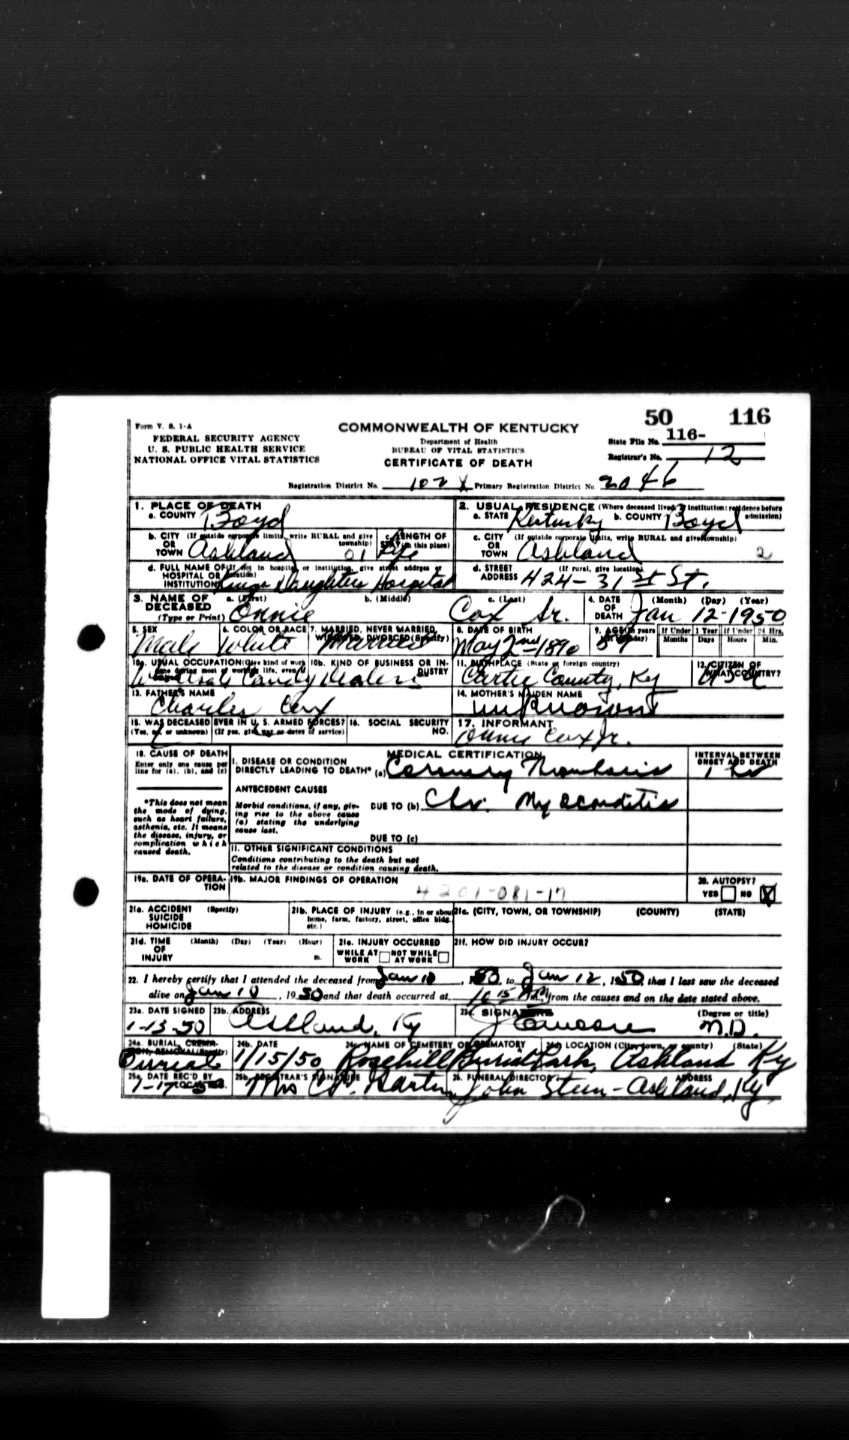 50 116
Form V. S. 1-A
COMMONWEALTH OF KENTUCKY
FEDERAL SECURITY AGENCY
U. S. PUBLIC HEALTH SERVICE
NATIONAL OFFICE VITAL STATISTICS
Department of Health
BUREAU OF VITAL STATISTICS
CERTIFICATE OF DEATH
State File No. 116-
Registrar's No. 12
Registration District No. 102 X Primary Registration District No. 2046
1. PLACE OF DEATH
a. COUNTY Boyd
2. USUAL RESIDENCE (Where deceased lived. If institution: residence before admission)
a. STATE Kentucky b. COUNTY Boyd
b. CITY (If outside corporate limits, write RURAL and give township)
OR TOWN Ashland 01
c. LENGTH OF STAY (in this place) Life
c. CITY (If outside corporate limits, write RURAL and give township)
OR TOWN Ashland 2
d. FULL NAME OF (If not in hospital or institution, give street address or location)
HOSPITAL OR INSTITUTION Kings Daughters Hospital
d. STREET ADDRESS (If rural, give location)
424-31st St.
3. NAME OF DECEASED (Type or Print)
a. (First) Onnie b. (Middle) c. (Last) Cox Sr.
4. DATE OF DEATH (Month) (Day) (Year)
Jan 12-1950
5. SEX Male
6. COLOR OR RACE White
7. MARRIED, NEVER MARRIED, WIDOWED, DIVORCED (Specify) Married
8. DATE OF BIRTH May 2nd-1890
9. AGE (In years last birthday) 59
If Under 1 Year Months Days
If Under 24 Hrs. Hours Min.
10a. USUAL OCCUPATION (Give kind of work done during most of working life, even if retired)
10b. KIND OF BUSINESS OR INDUSTRY
Wholesale Candy Dealer
11. BIRTHPLACE (State or foreign country)
Carter County, Ky
12. CITIZEN OF WHAT COUNTRY?
USA
13. FATHER'S NAME
Charles Cox
14. MOTHER'S MAIDEN NAME
unknown
15. WAS DECEASED EVER IN U. S. ARMED FORCES?
(Yes, no, or unknown) (If yes, give war or dates of service)
16. SOCIAL SECURITY NO.
17. INFORMANT
Onnie Cox Jr.
18. CAUSE OF DEATH
Enter only one cause per line for (a), (b), and (c)
MEDICAL CERTIFICATION
INTERVAL BETWEEN ONSET AND DEATH
I. DISEASE OR CONDITION DIRECTLY LEADING TO DEATH* (a) Coronary Thrombosis
*This does not mean the mode of dying, such as heart failure, asthenia, etc. It means the disease, injury, or complication which caused death.
ANTECEDENT CAUSES
Morbid conditions, if any, giving rise to the above cause (a) stating the underlying cause last.
DUE TO (b) Chr. Myocarditis
DUE TO (c)
II. OTHER SIGNIFICANT CONDITIONS
Conditions contributing to the death but not related to the disease or condition causing death.
19a. DATE OF OPERATION
19b. MAJOR FINDINGS OF OPERATION
4201-081-17
20. AUTOPSY?
YES NO X
21a. ACCIDENT SUICIDE HOMICIDE (Specify)
21b. PLACE OF INJURY (e.g., in or about home, farm, factory, street, office bldg., etc.)
21c. (CITY, TOWN, OR TOWNSHIP) (COUNTY) (STATE)
21d. TIME OF INJURY (Month) (Day) (Year) (Hour) m.
21e. INJURY OCCURRED
WHILE AT WORK NOT WHILE AT WORK
21f. HOW DID INJURY OCCUR?
22. I hereby certify that I attended the deceased from Jan 10, 1950, to Jan 12, 1950, that I last saw the deceased
alive on Jan 10, 1950 and that death occurred at 10 15 PM, from the causes and on the date stated above.
23a. DATE SIGNED 1-13-50
23b. ADDRESS Ashland, Ky
23c. SIGNATURE (Degree or title)
M.D.
24a. BURIAL, CREMATION, REMOVAL (Specify) Burial
24b. DATE 1/15/50
24c. NAME OF CEMETERY OR CREMATORY Rosehill Burial Park,
24d. LOCATION (City, town, or county) (State) Ashland Ky
25a. DATE REC'D BY LOCAL REG. 1-17-50
25b. REGISTRAR'S SIGNATURE
26. FUNERAL DIRECTOR ADDRESS
John Steen-Ashland, Ky.